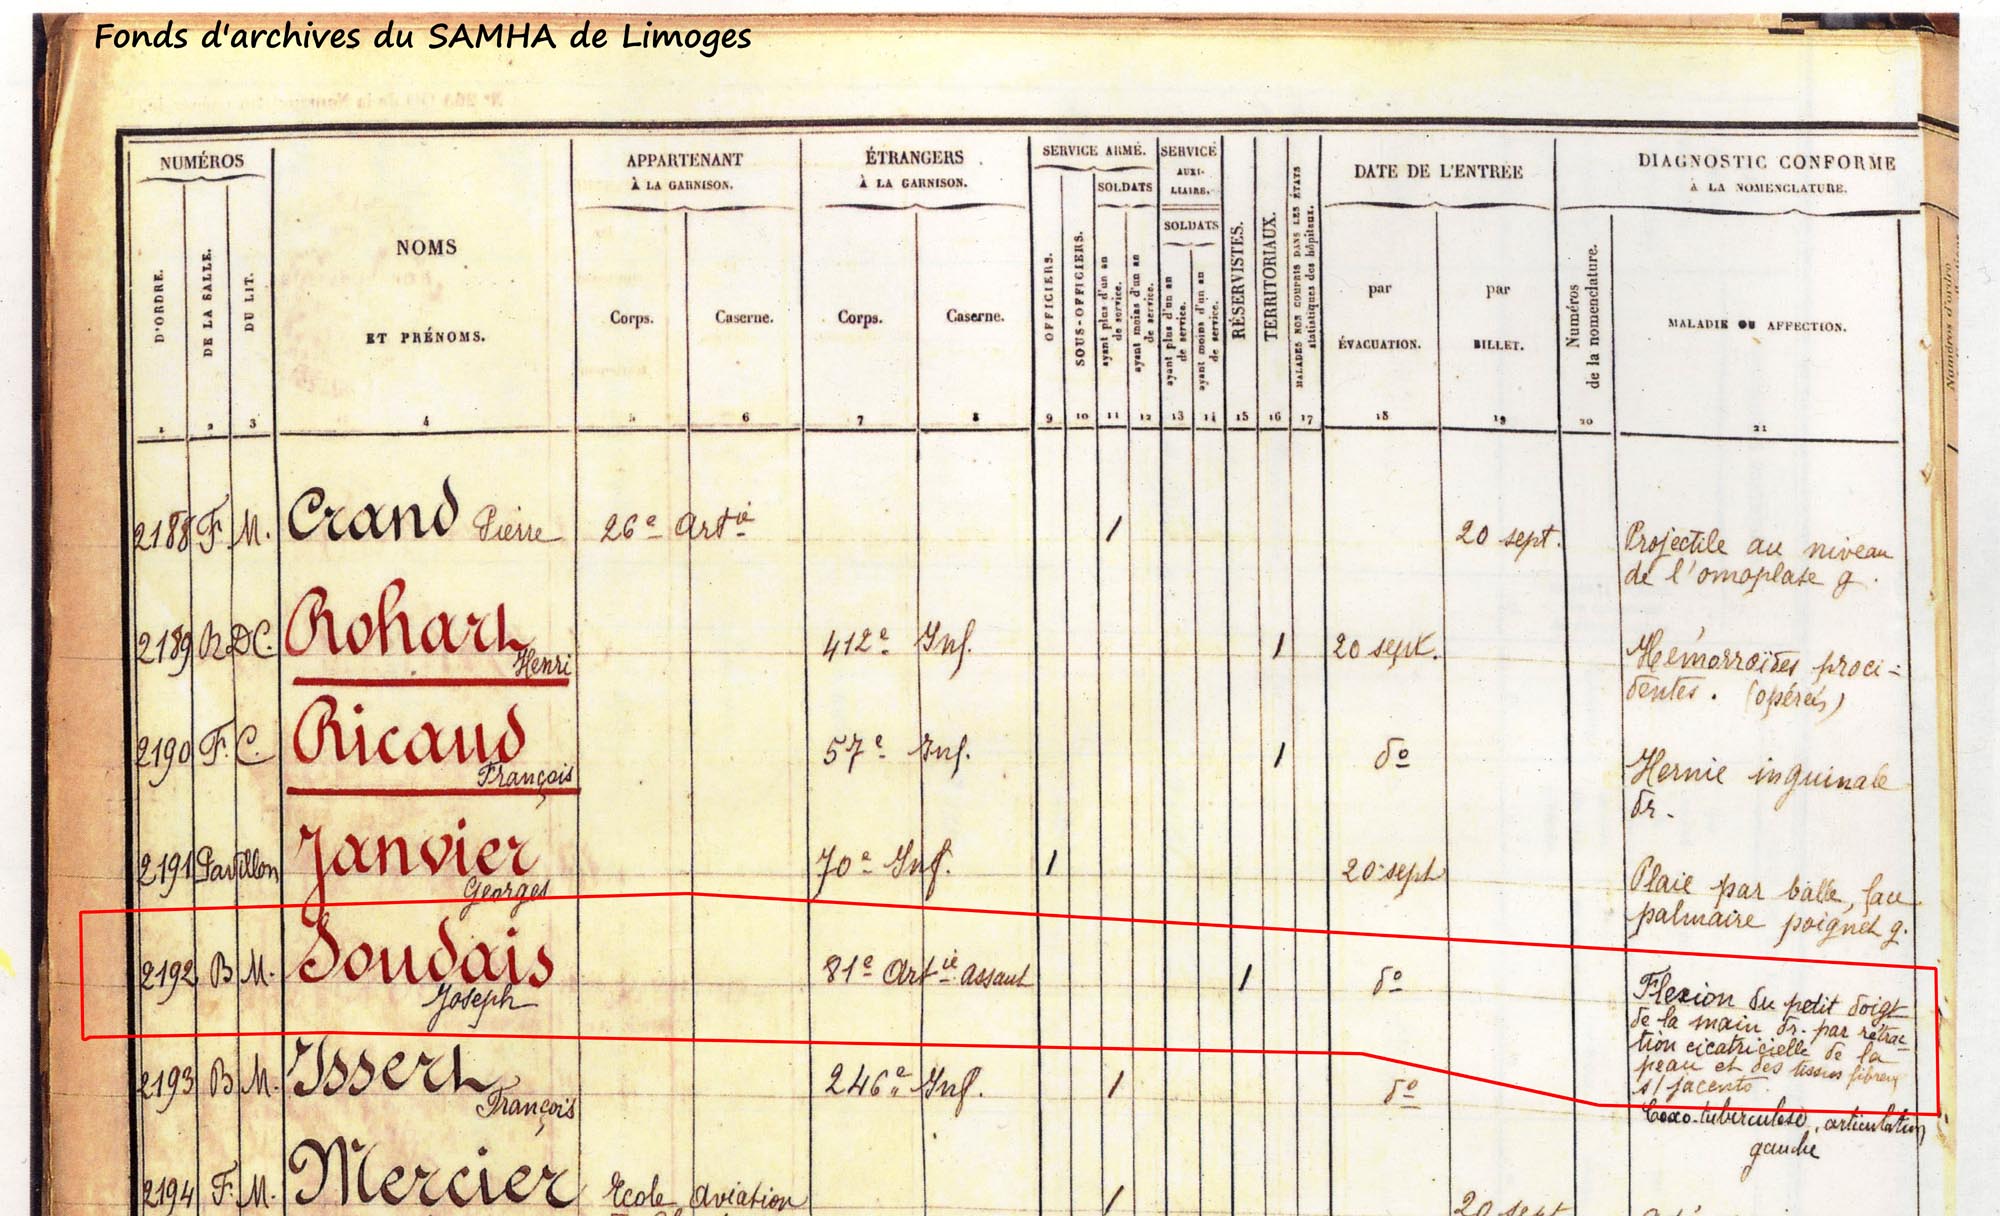 Fonds d'archives du SAMHA de Limoges
NUMÉROS
D'ORDRE.
DE LA SALLE.
DU LIT.
NOMS
ET PRÉNOMS.
APPARTENANT
À LA GARNISON.
Corps.
Caserne.
ÉTRANGERS
À LA GARNISON.
Corps.
Caserne.
SERVICE ARMÉ.
OFFICIERS.
SOUS-OFFICIERS.
SOLDATS
ayant plus d'un an
de service.
ayant moins d'un an
de service.
SERVICE
AUXI-
LIAIRE.
SOLDATS
ayant plus d'un an
de service.
ayant moins d'un an
de service.
RÉSERVISTES.
TERRITORIAUX.
MALADES NON COMPRIS DANS LES ÉTATS
statistiques des hôpitaux.
DATE DE L'ENTRÉE
par
ÉVACUATION.
par
BILLET.
DIAGNOSTIC CONFORME
À LA NOMENCLATURE.
Numéros
de la nomenclature.
MALADIE OU AFFECTION.
Numéros d'ordre
1 2 3 4 5 6 7 8 9 10 11 12 13 14 15 16 17 18 19 20 21
2188 F. M. Crand Pierre 26e Artie 1 20 sept. Projectile au niveau
de l'omoplate g.
2189 R DC. Rohart Henri 412e Inf. 1 20 sept. Hémorroïdes proci-
dentes. (opérés)
2190 F. C. Ricaud François 57e Inf. 1 do Hernie inguinale
dr.
2191 Pavillon Janvier Georges 70e Inf. 1 20 sept Plaie par balle, face
palmaire poignet g.
2192 B M. Soudais Joseph 81e Artie assaut 1 do Flexion du petit doigt
de la main dr. par rétrac-
tion cicatricielle de la
peau et des tissus fibreux
s/jacents.
2193 B M. Issert François 246e Inf. 1 do Coxo-tuberculose, articulation
gauche
2194 F. M. Mercier Ecole Aviation 1 20 sept